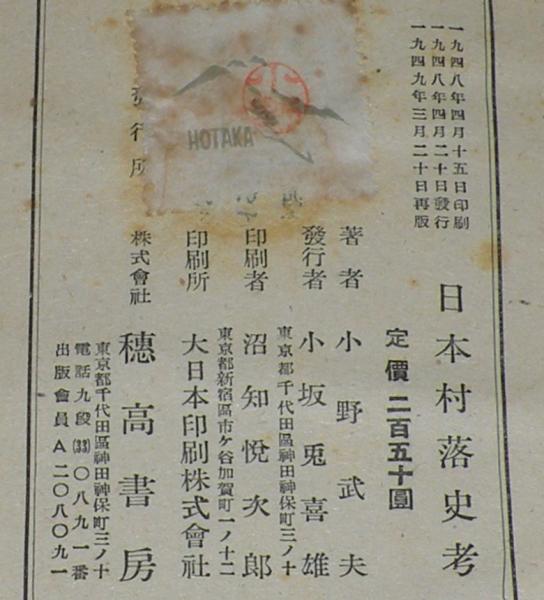 一九四八年四月十五日印刷
一九四八年四月二十日發行
一九四九年三月二十日再版
日本村落史考
定價 二百五十圓
著者 小野武夫
發行者 小坂兎喜雄
東京都千代田區神田神保町三ノ十
印刷者 沼知悅次郎
東京都新宿區市ケ谷加賀町一ノ十二
印刷所 大日本印刷株式會社
發行所
株式會社 穗高書房
東京都千代田區神田神保町三ノ十
電話九段(33)〇八九一番
出版會員A二〇八〇九一
HOTAKA